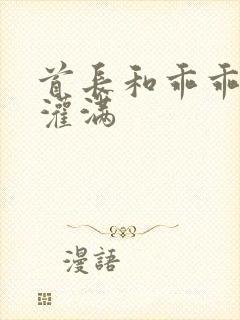 首長和乖乖
灌满
漫語